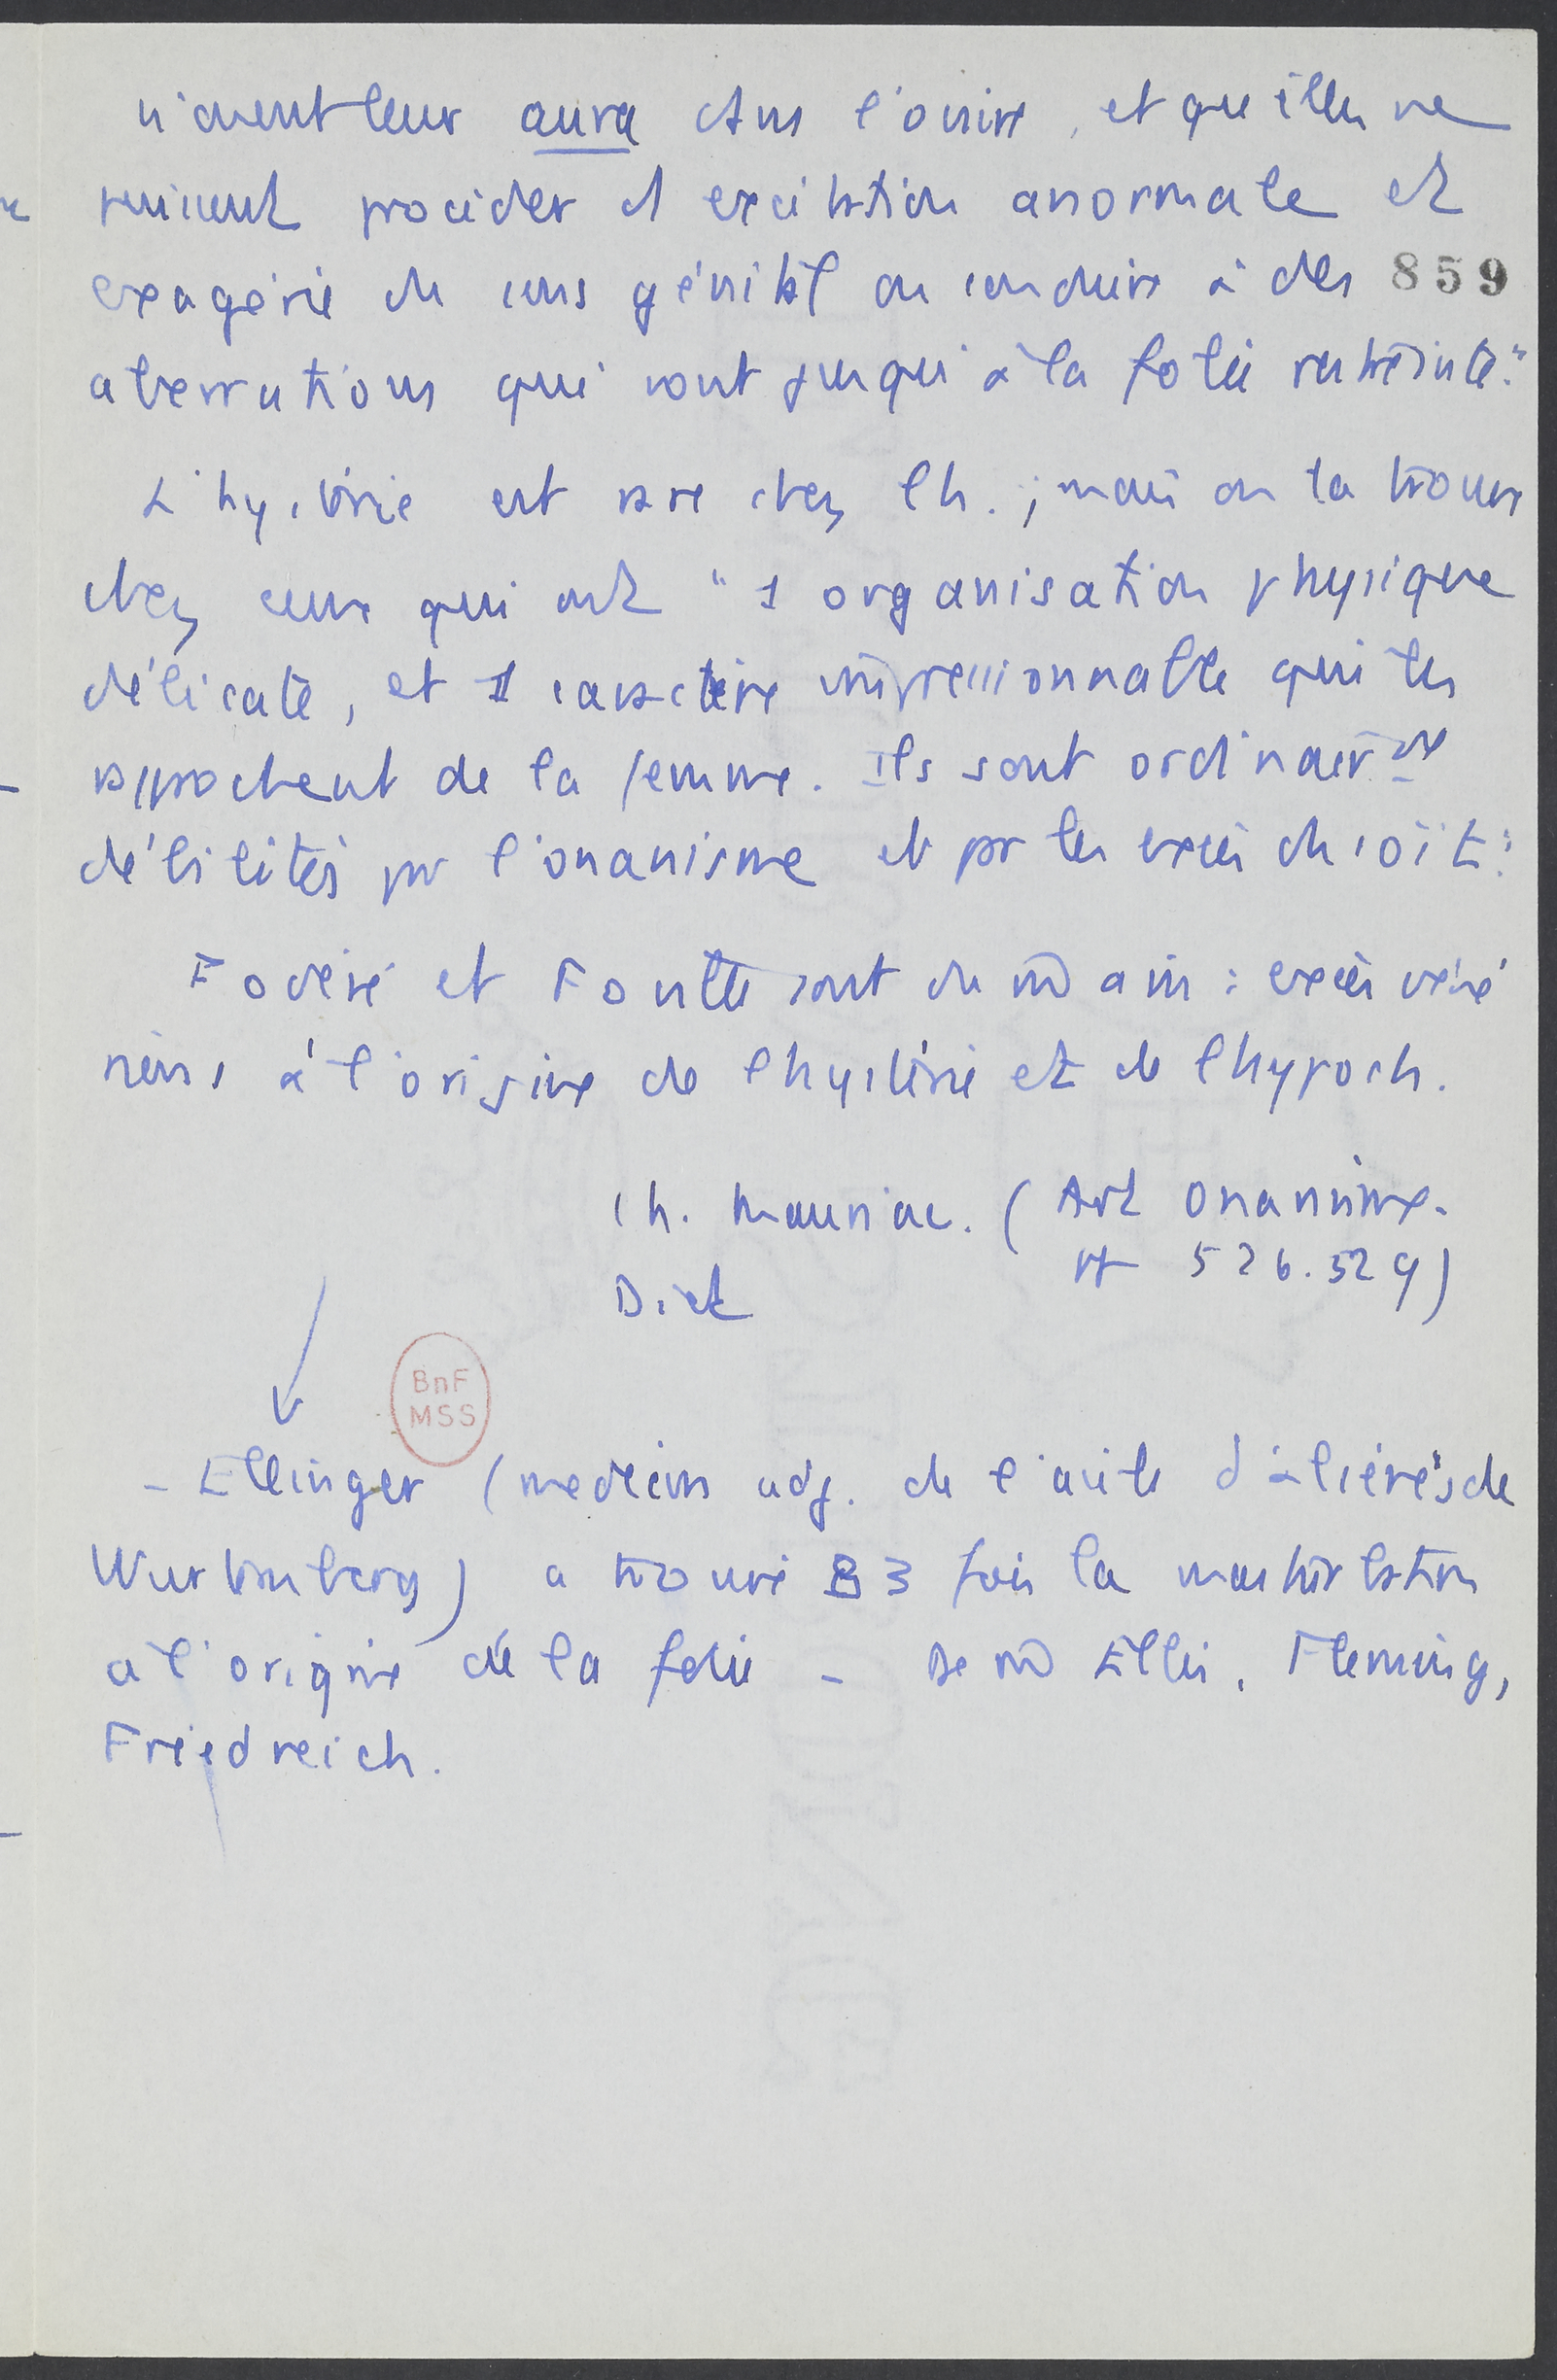 n'aient leur aura dans l'ovaire, et qu'elles ne
puissent procéder d'1 excitation anormale et
exagérée du sens génital ou conduire à des 859
aberrations qui vont jusqu'à la folie utérine."
L'hystérie est rare chez l'h. ; mais on la trouve
chez ceux qui ont "1 organisation physique
délicate, et 1 caractère impressionnable qui les
rapprochent de la femme. Ils sont ordinairt
débilités par l'onanisme et par les excès du coït".
Foderé et sont du m̂ avis : excès véné
riens à l'origine de l'hystérie et de l'hypoch.
Ch. Mauriac. (Art Onanisme.
pp 526.529)
Dict
BnF
MSS
- Ellinger (médecin adj. de l'asile d'aliénés de
Wurtemberg) a trouvé 83 fois la masturbation
à l'origine de la folie - De m̂ Ellis, Fleming,
Friedreich.